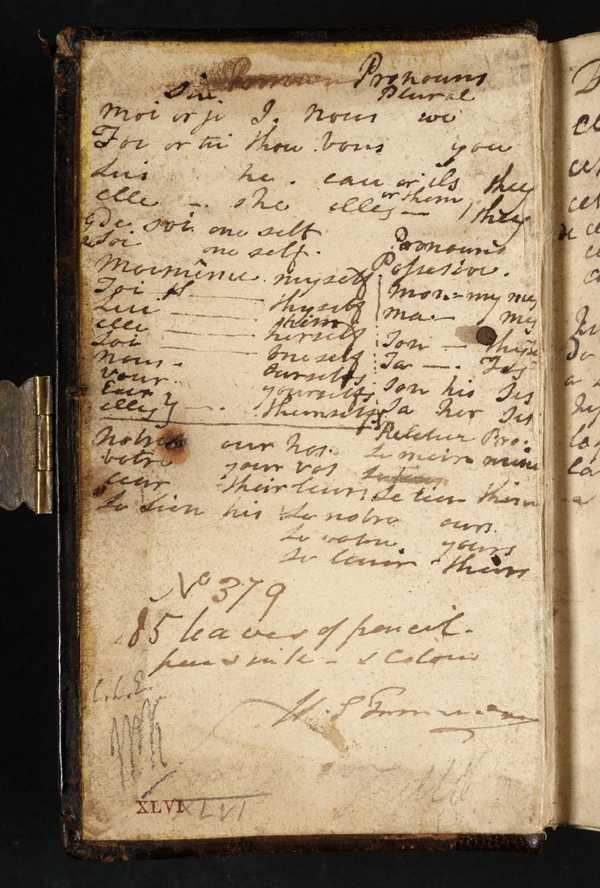 Pronouns
Sin Plural
moi or je I. nous we
Toi or tu thou. vous you
Lui he. eau or ils they
elle — she elles — or them they
De soi. oneself
Soi oneself. Pronouns
Moimême myself Possesive.
Toi thyself mon — my mes
Lui — him ma — my
elle — herself Ton — thy Tes
Soi — oneself Ta —. Tes
nous — ourselfs Son his Ses
vous. yourselfs Sa her Ses
Eux
elles —. themselfs Relative Pro.
notre our nos. Le mein mine
votre your vos
leur their leurs Le tien thine
Le Sien his Le notre ours.
Le votre yours
Le leur theirs
No 379
85 leaves of pencil.
pen & ink — & Colour
C.L.E.
XLVI XLVI